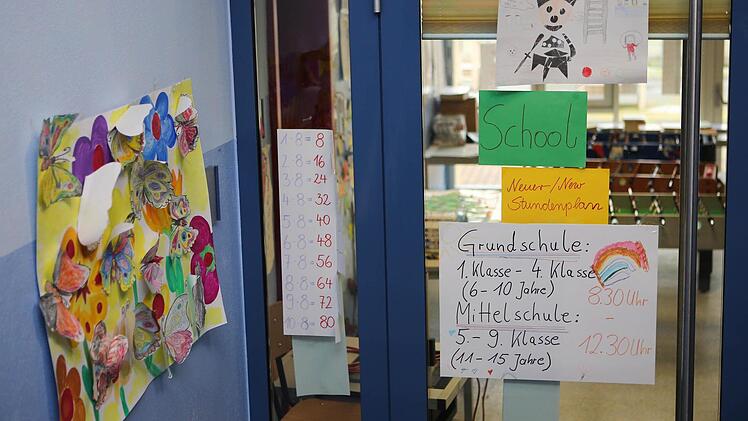 1·8=8
2·8=16
3·8=24
4·8=32
5·8=40
6·8=48
7·8=56
8·8=64
9·8=72
10·8=80
School
Neuer-/New
Stundenplan
Grundschule:
1. Klasse - 4. Klasse
(6-10 Jahre)
8.30 Uhr
-
12.30 Uhr
Mittelschule:
5. - 9. Klasse
(11-15 Jahre)